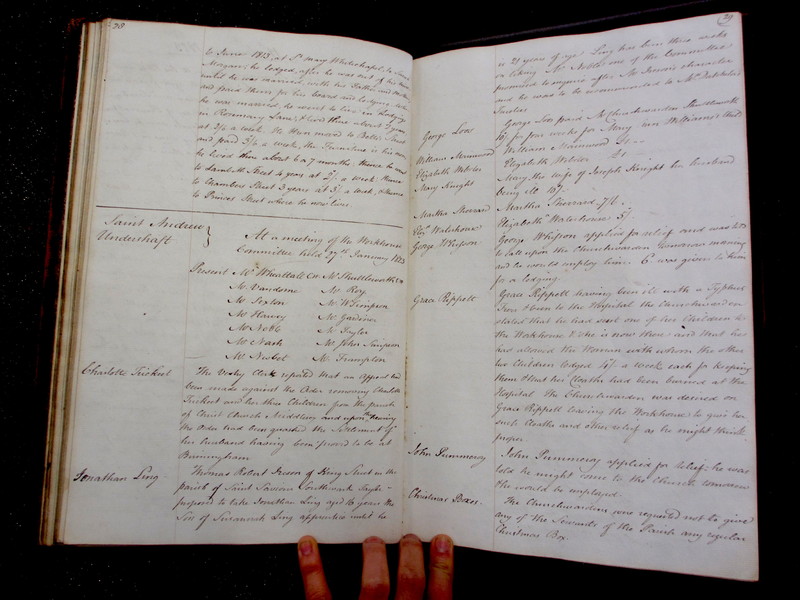 28
to June 1813, at St. Mary Whitechapel, to
Margaret he lodged, after he was out of his time
until he was married, with his Father and Mother
and paid them for his board and lodging. When
he was married, he went to live in
in Rosemary Lane, & lived there about 2 years
at 2/6 a week. He then moved to Bakers Street
and paid 3/6 a week, the Furniture is his own
he lived there about 6 or 7 months; thence he went
to Lambeth Street 4 years at 2/ a week, thence
to Chambers Street 3 years at 3/ a week, & thence
to Princes Street where he now lives.
Saint Andrew
Undershaft
At a meeting of the Workhouse
Committee held 27th January 1813
Present Mr. Wheattall CW Mr. Shuttleworth CW
Mr. Vandome Mr. Roy
Mr. Sexton Mr. W Simpson
Mr. Harvey Mr. Gardiner
Mr. Noble Mr. Taylor
Mr. Nash Mr. John Simpson
Mr. Nesbet Mr. Frampton
Charlotte Trickett
The Vestry Clerk reported that an Appeal had
been made against the Order removing Charlotte
Trickett and her three Children from the parish
of Christ Church Middlesex and upon the hearing
the Order had been quashed the Settlement of
her husband having been proved to be at
Birmingham
Jonathan Ling
Thomas Robert Iveson of King Street in the
parish of Saint Saviour Southwark Taylor
proposed to take Jonathan Ling aged 16 years the
Son of Susannah Ling apprentice until he
29
is 21 years of age. Ling has been three weeks
on liking. Mr. Noble one of the Committee
promised to enquire after Mr. Iveson's character
and he was to be recommended to Mr.
Taylor.
George Lees
George Lees paid Mr. Churchwarden Shuttleworth
16/ for four weeks for Mary Ann Williams's Child
William Manwood
William Manwood £1 --
Elizabeth Webster
Elizabeth Webster £1
Mary Knight
Mary the wife of Joseph Knight her husband
being ill 10/.
Martha Sherrard
Martha Sherrard 7/6.
Elizth. Waterhouse
Elizabeth Waterhouse 5/.
George Whipson
George Whipson applied for relief and was told
to call upon the Churchwarden tomorrow morning
and he would employ him. 6d. was given to him
for a lodging.
Grace Rippett
Grace Rippett having been ill with a Typhus
Fever & been to the Hospital the Churchwarden
stated that he had sent one of her Children to
the Workhouse & who is now there and that he
had allowed the Woman with whom the other
two Children lodged 4/ a week each for keeping
them & that her Cloaths had been burned at the
Hospital. The Churchwarden was desired on
Grace Rippett leaving the Workhouse to give her
such Cloaths and other relief as he might think
proper
John Pummeroy
John Pummeroy applied for relief: he was
told he might come to the Church tomorrow
& he would be employed.
Christmas Boxes
The Churchwardens were requested not to give
any of the Servants of the Parish any regular
Christmas Box.